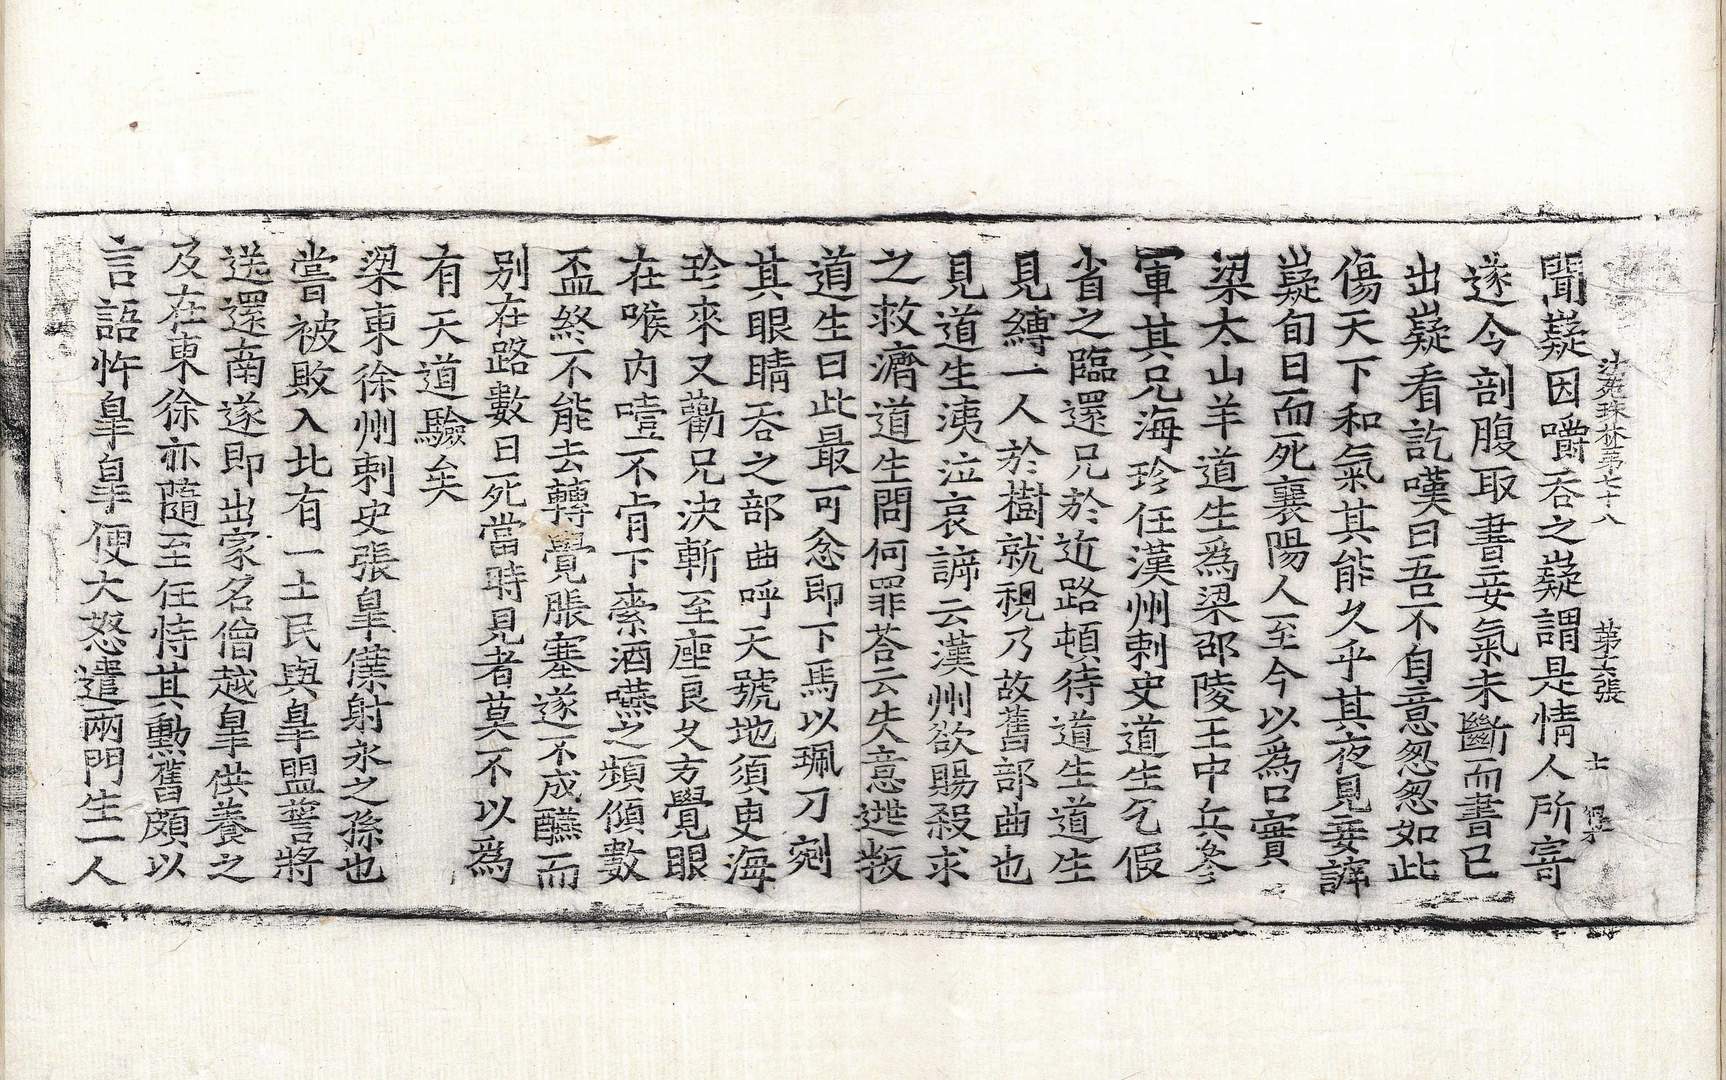 法苑珠林第七十八 第六張 士
聞嶷因嚼吞之嶷謂是情人所寄
遂令剖腹取書妾氣未斷而書已
出嶷看訖嘆曰吾不自意怱怱如此
傷天下和氣其能久乎其夜見妾訴
嶷旬日而死襄陽人至今以爲口實
梁太山羊道生爲梁邵陵王中兵叅
軍其兄海珍任漢州刺史道生乞假
省之臨還兄於近路頓待道生道生
見縛一人於樹就視乃故舊部曲也
見道生洟泣哀諦云漢州欲賜殺求
之救濟道生問何罪荅云失意逃叛
道生曰此最可忿即下馬以珮刀剜
其眼睛吞之部曲呼天號地須臾海
珍來又勸兄決斬至座良久方覺眼
在喉內噎不肯下索酒嚥之頻傾數
盃終不能去轉覺脹塞遂不成醼而
別在路數日死當時見者莫不以爲
有天道驗矣
梁東徐州刺史張皐僕射永之孫也
嘗被敗入北有一土民與皐盟誓將
送還南遂即出家名僧越皐供養之
及在東徐亦隨至任恃其勳舊頗以
言語忤皐皐便大怒遣兩門生一人